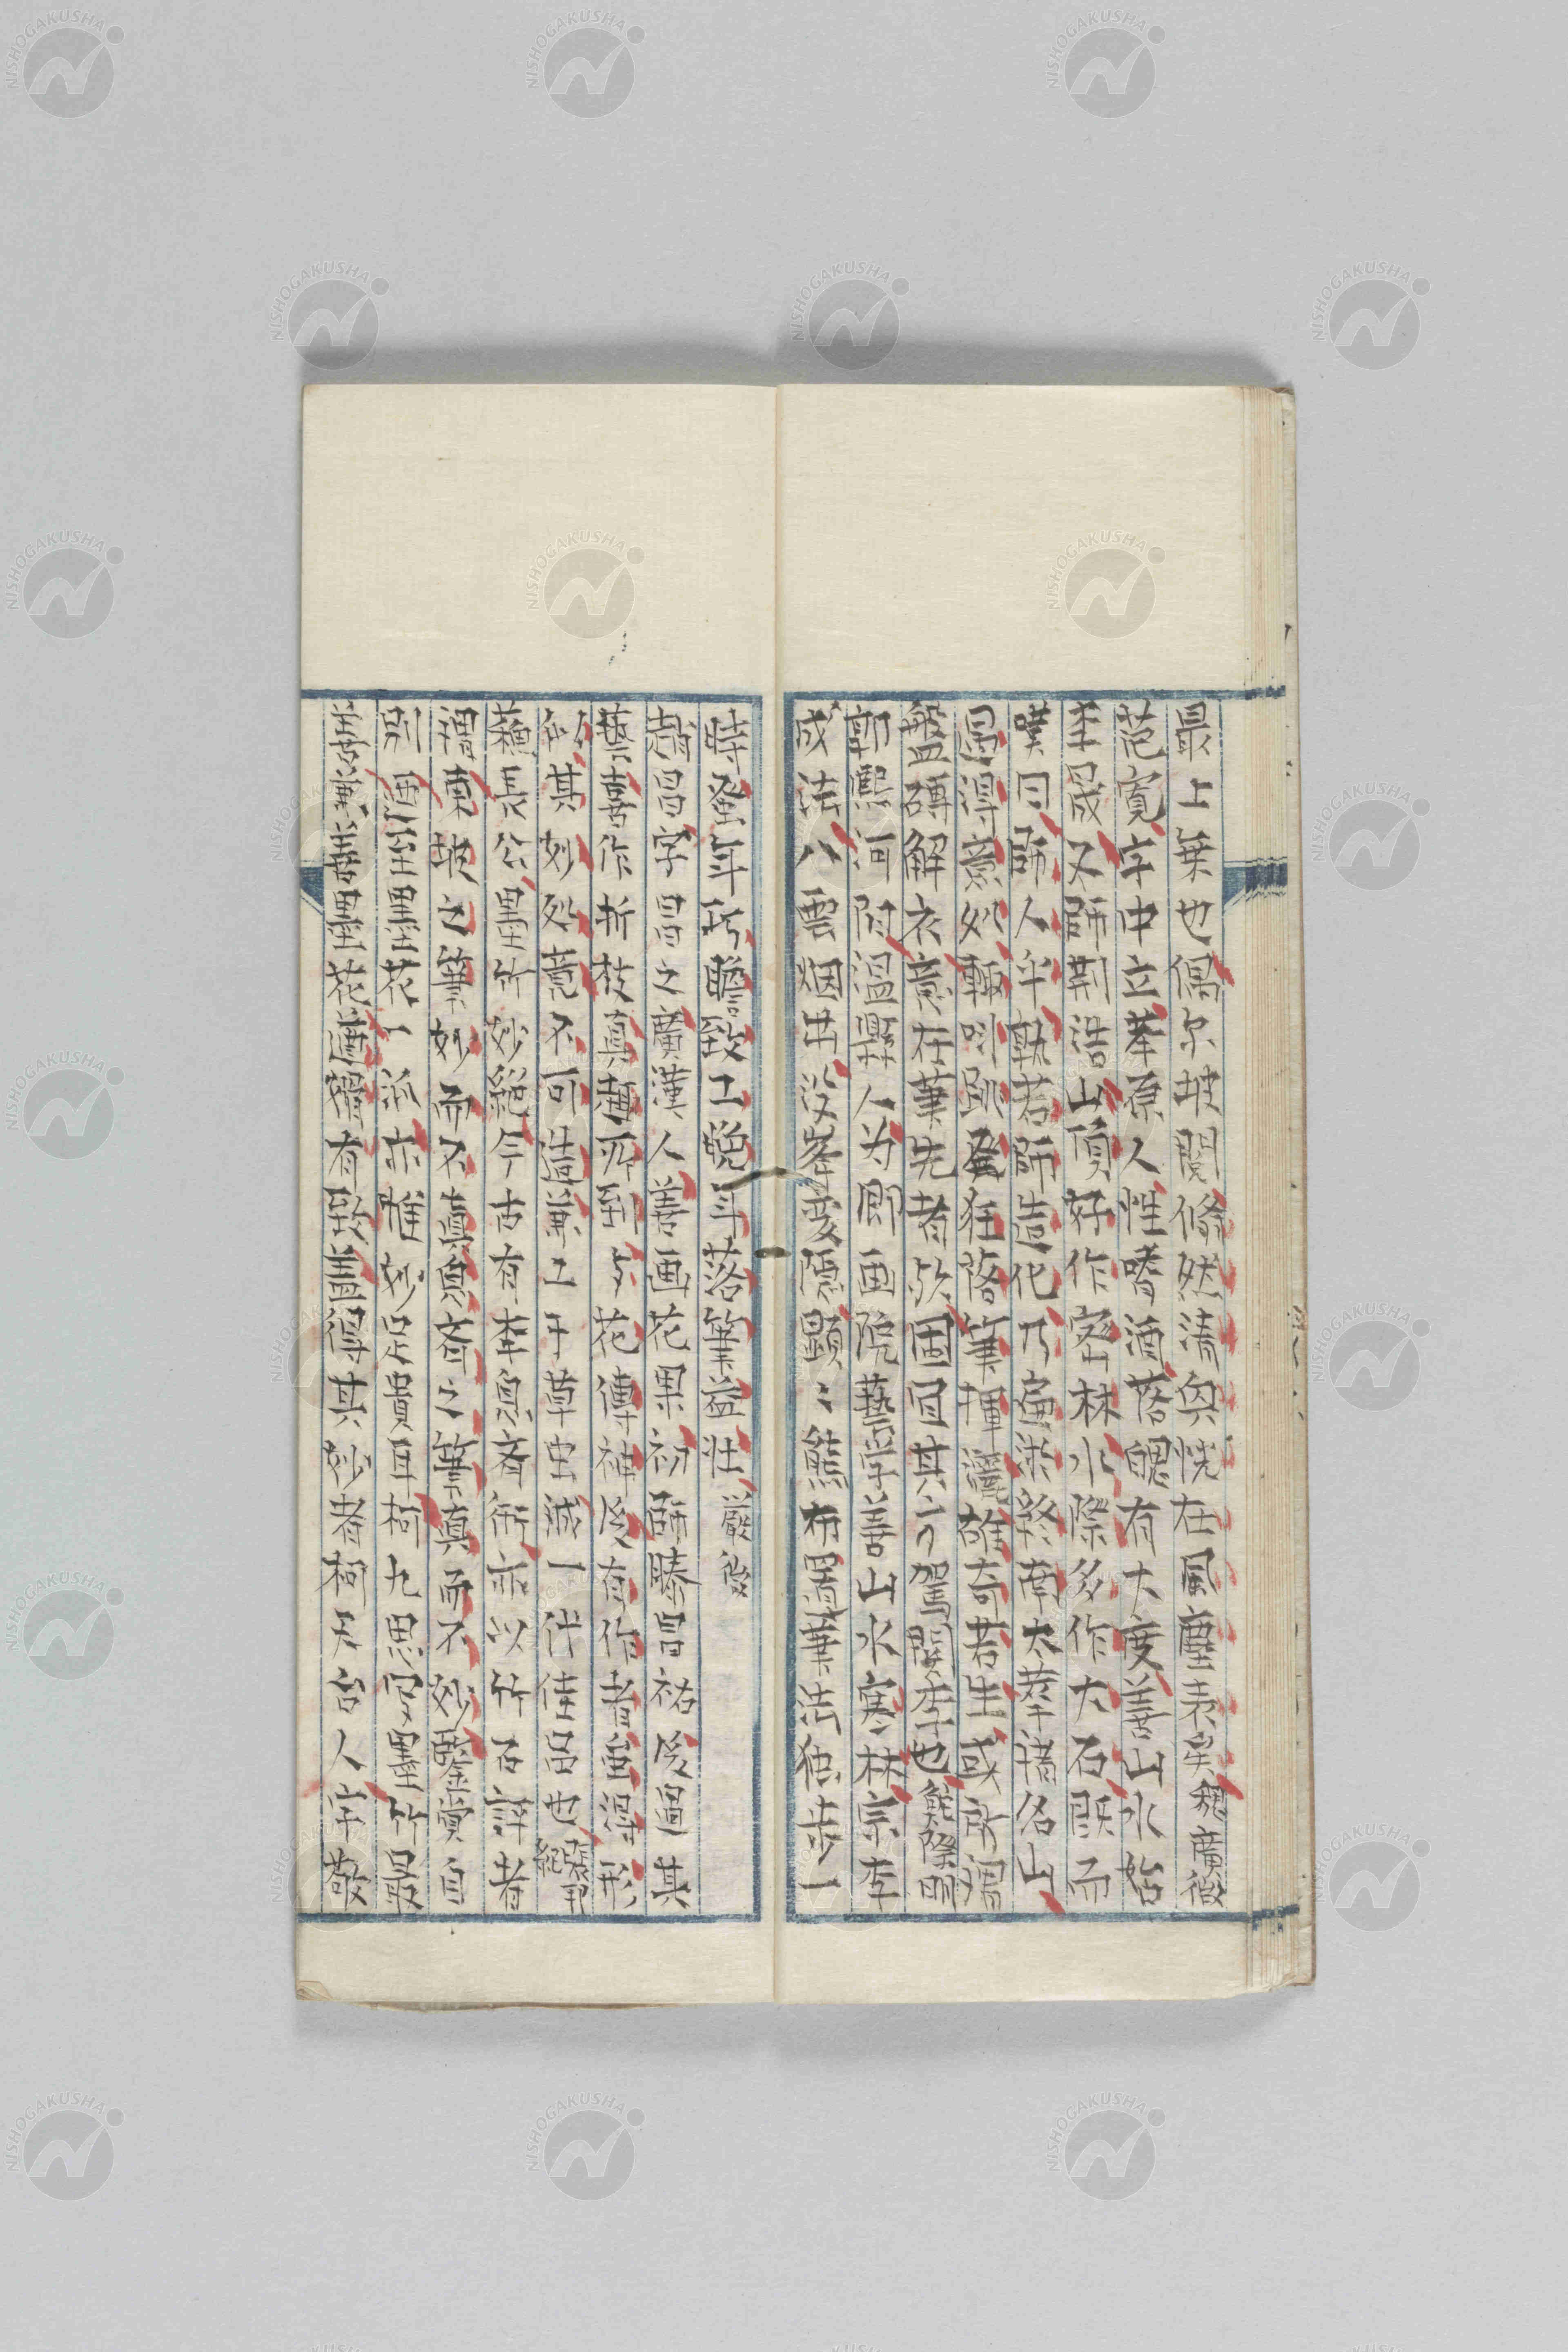 最上乗也偶尓披閲倏然清奥恍在風塵表矣魏廣微
范寛字中立華原人性嗜酒落魄有大度善山水始
李成又師荆浩山頂好作密林水際多作大石既而
嘆曰師人乎孰若師造化乃遍游終南太華諸名山
遇得意処輙叫跳發狂落筆揮灑雄奇若生或所謂
盤礴解衣意在筆先者歟圖冝其二勺駕関李也鮮際明
郭熙河陽温縣人为御画院藝学善山水寒林宗李
成法八雲烟出没峯变隠顕〻態布置筆法独步一
時蚤年巧贍致工晚年落筆益壮嚴俊
趙昌字昌之廣漢人善画花果初師滕昌祐後過其
藝喜作折枝真趣所到与花傳神後有作者皆得形
似其妙処竟不可造兼工于草虫誠一代佳品也張紀
蘓長公墨竹妙絶今古有李息斎衎亦以竹石詳者
謂東坡之筆妙而不真息斎之筆真而不妙鑒賞自
別画至墨花一派亦惟妙足貴耳柯九思家墨竹最
善兼善墨花遒媚有致盖得其妙者柯天台人字敬
NISHOGAKUSHA